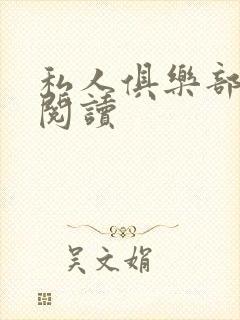 私人俱樂部
閱讀
吴文娟